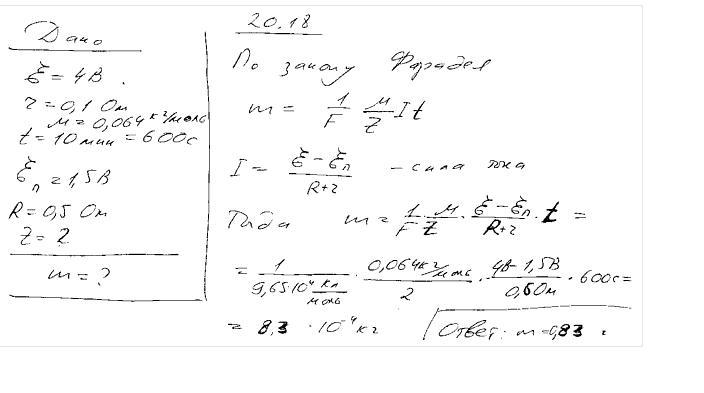 Дано
ℰ = 4 В.
r = 0,1 Ом
μ = 0,064 кг/моль
t = 10 мин = 600 с
ℰп = 1,5 В
R = 0,5 Ом
Z = 2
m = ?
20.18
По закону Фарадея
m = 1/F μ/Z It
I = (ℰ - ℰп)/(R+r) - сила тока
Тогда m = 1/F · μ/Z · (ℰ - ℰп)/(R+r) · t =
= 1/(9,65·10⁴ Кл/моль) · (0,064 кг/моль)/2 · (4В - 1,5В)/(0,6 Ом) · 600с =
= 8,3 · 10⁻⁴ кг
Ответ: m = 0,83 г